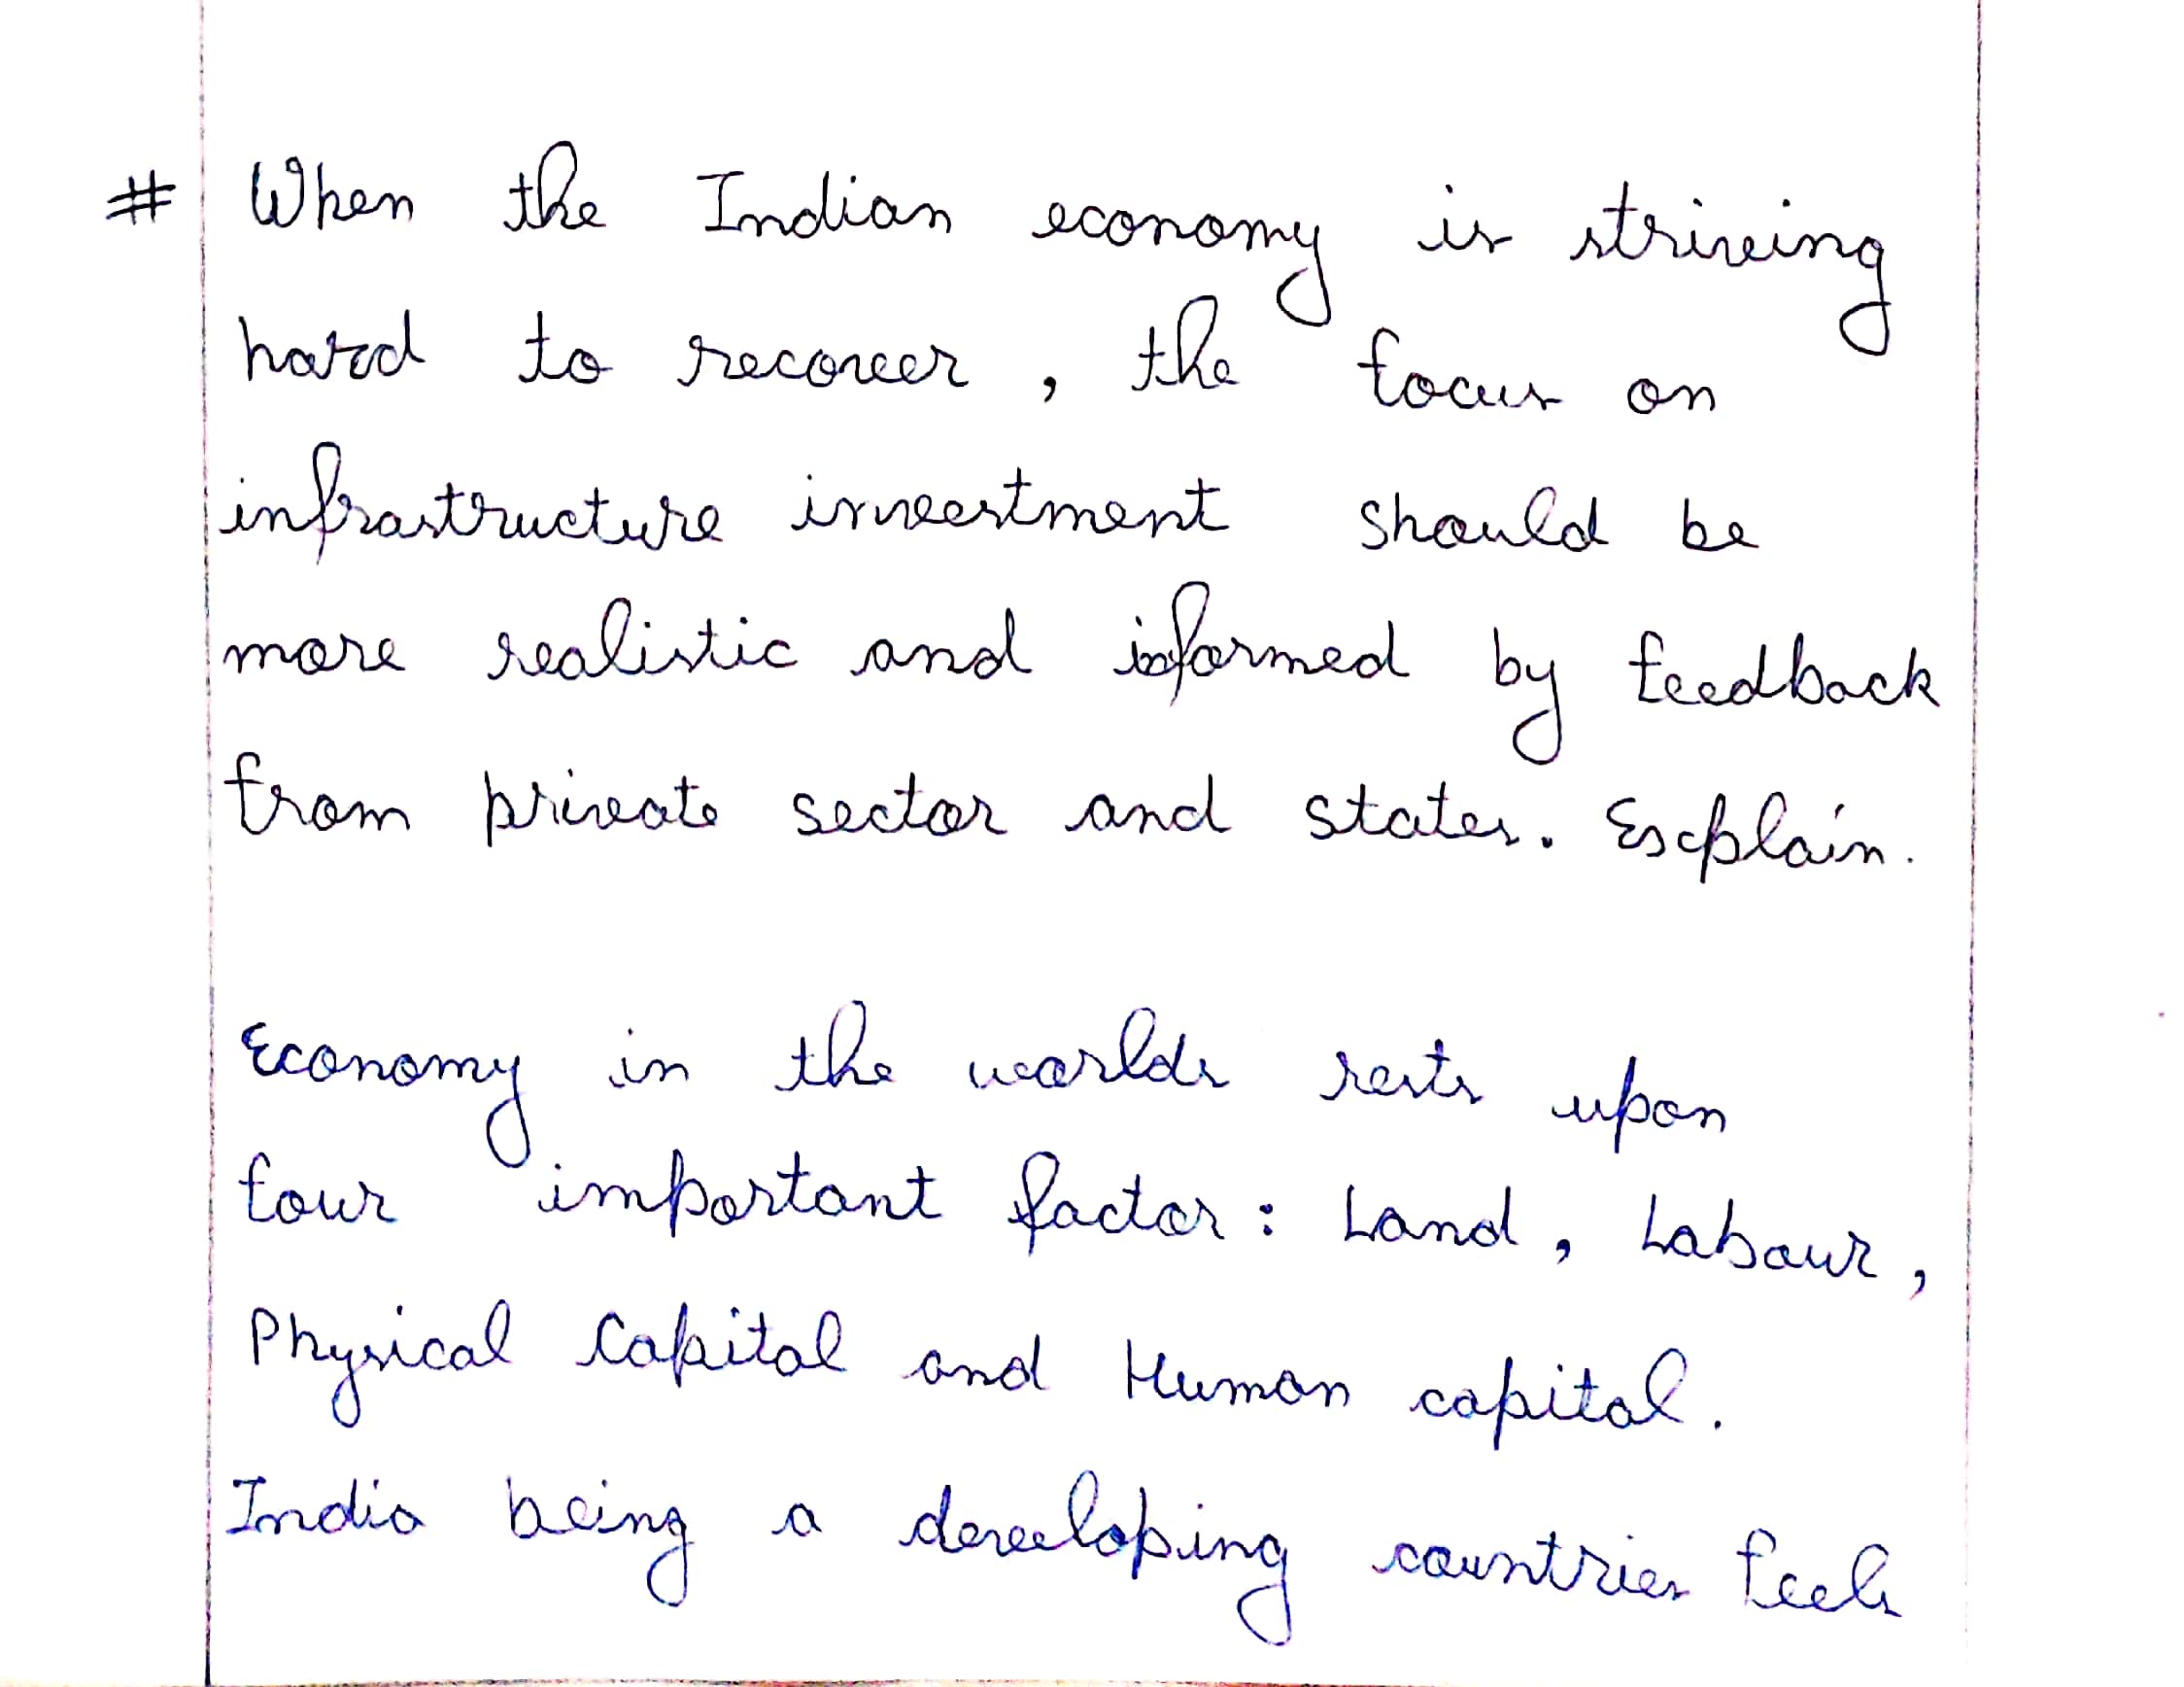 # When the Indian economy is striving
hard to recover, the focus on
infrastructure investment should be
more realistic and informed by feedback
from private sector and states. Explain.
Economy in the worlds rests upon
four important factor: Land, Labour,
Physical Capital and Human capital.
India being a developing countries feels